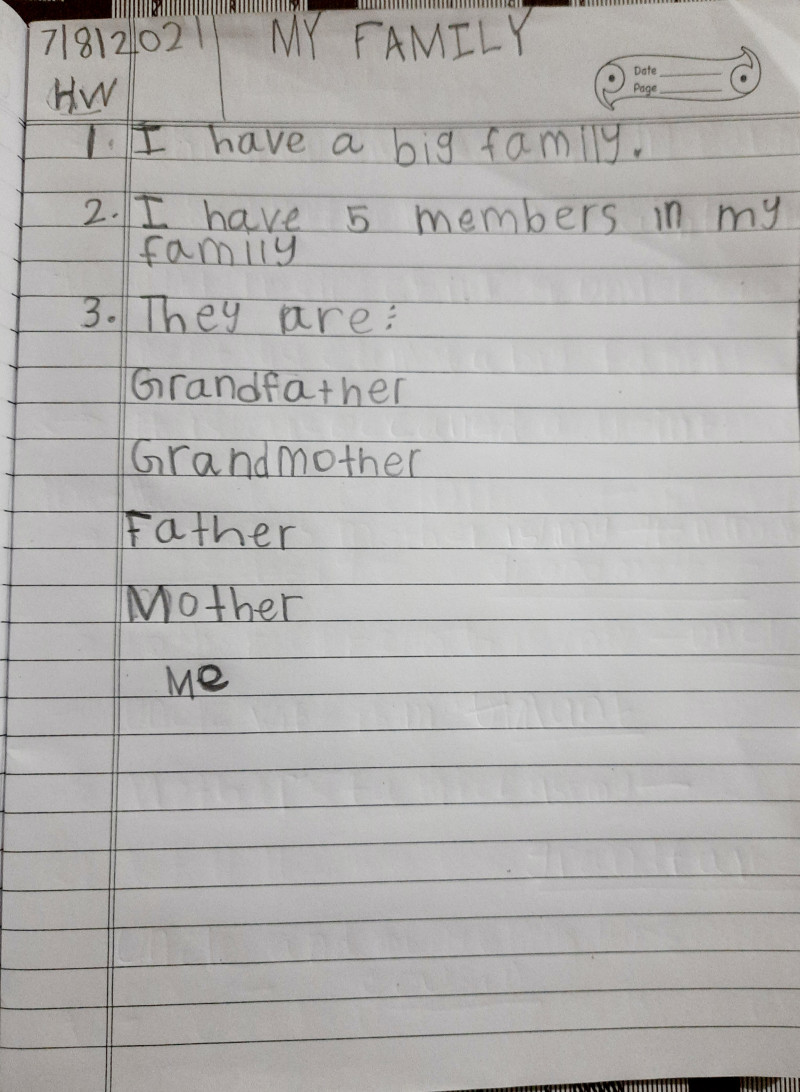 7/8/2021 MY FAMILY
Date
HW
Page
1. I have a big family.
2. I have 5 members in my
family
3. They are:
Grandfather
Grandmother
Father
Mother
Me